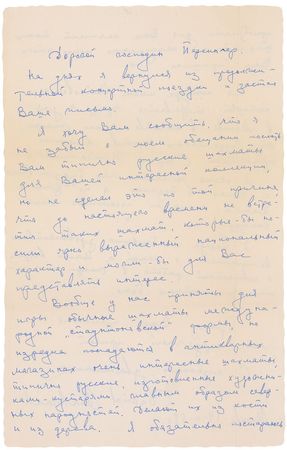 Дорогой господин Перельмер.
На днях я вернулся из продолжи-
тельной концертной поездки и застал
Ваше письмо.
Я хочу Вам сообщить, что я
не забыл о моем обещании послать
Вам типично русские шахматы
для Вашей интересной коллекции,
но не сделал это по той причине,
что до настоящего времени не встре-
тил таких шахмат, которые-бы но-
сили ярко выраженный национальный
характер и могли-бы для Вас
представлять интерес.
Вообще у нас приняты для
игры обычные шахматы междуна-
родной "стаунтоновской" формы, но
изредка попадаются в антикварных
магазинах очень интересные шахматы,
типично русские, изготовленные художни-
ками-кустарями главным образом север-
ных народностей. Делают их из кости
и из дерева. Я обязательно постараюсь